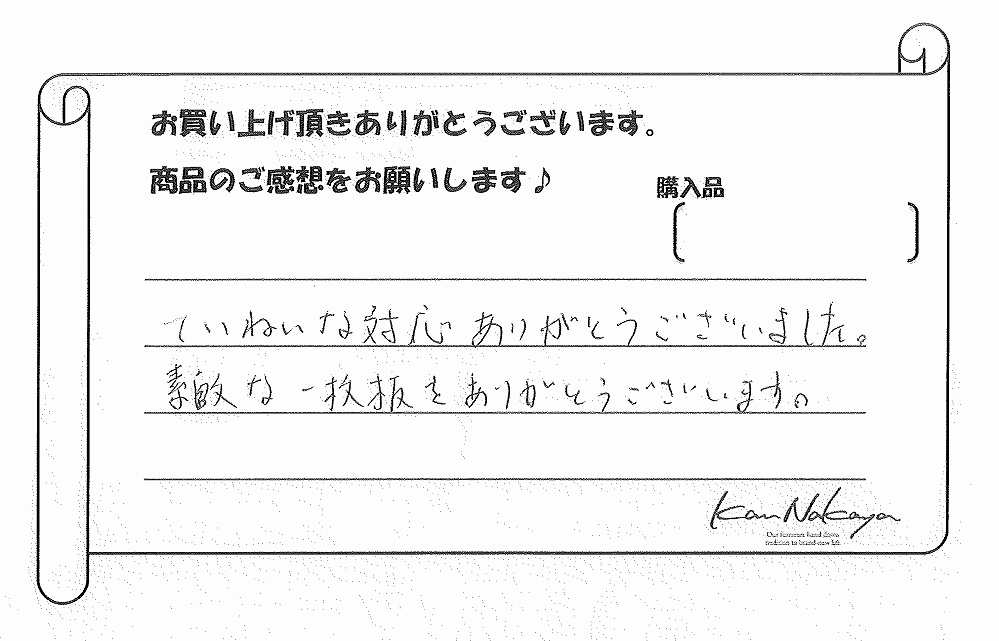 お買い上げ頂きありがとうございます。
商品のご感想をお願いします♪
購入品
ていねいな対応ありがとうございました。
素敵な一枚板をありがとうございます。
Kan Nakaya